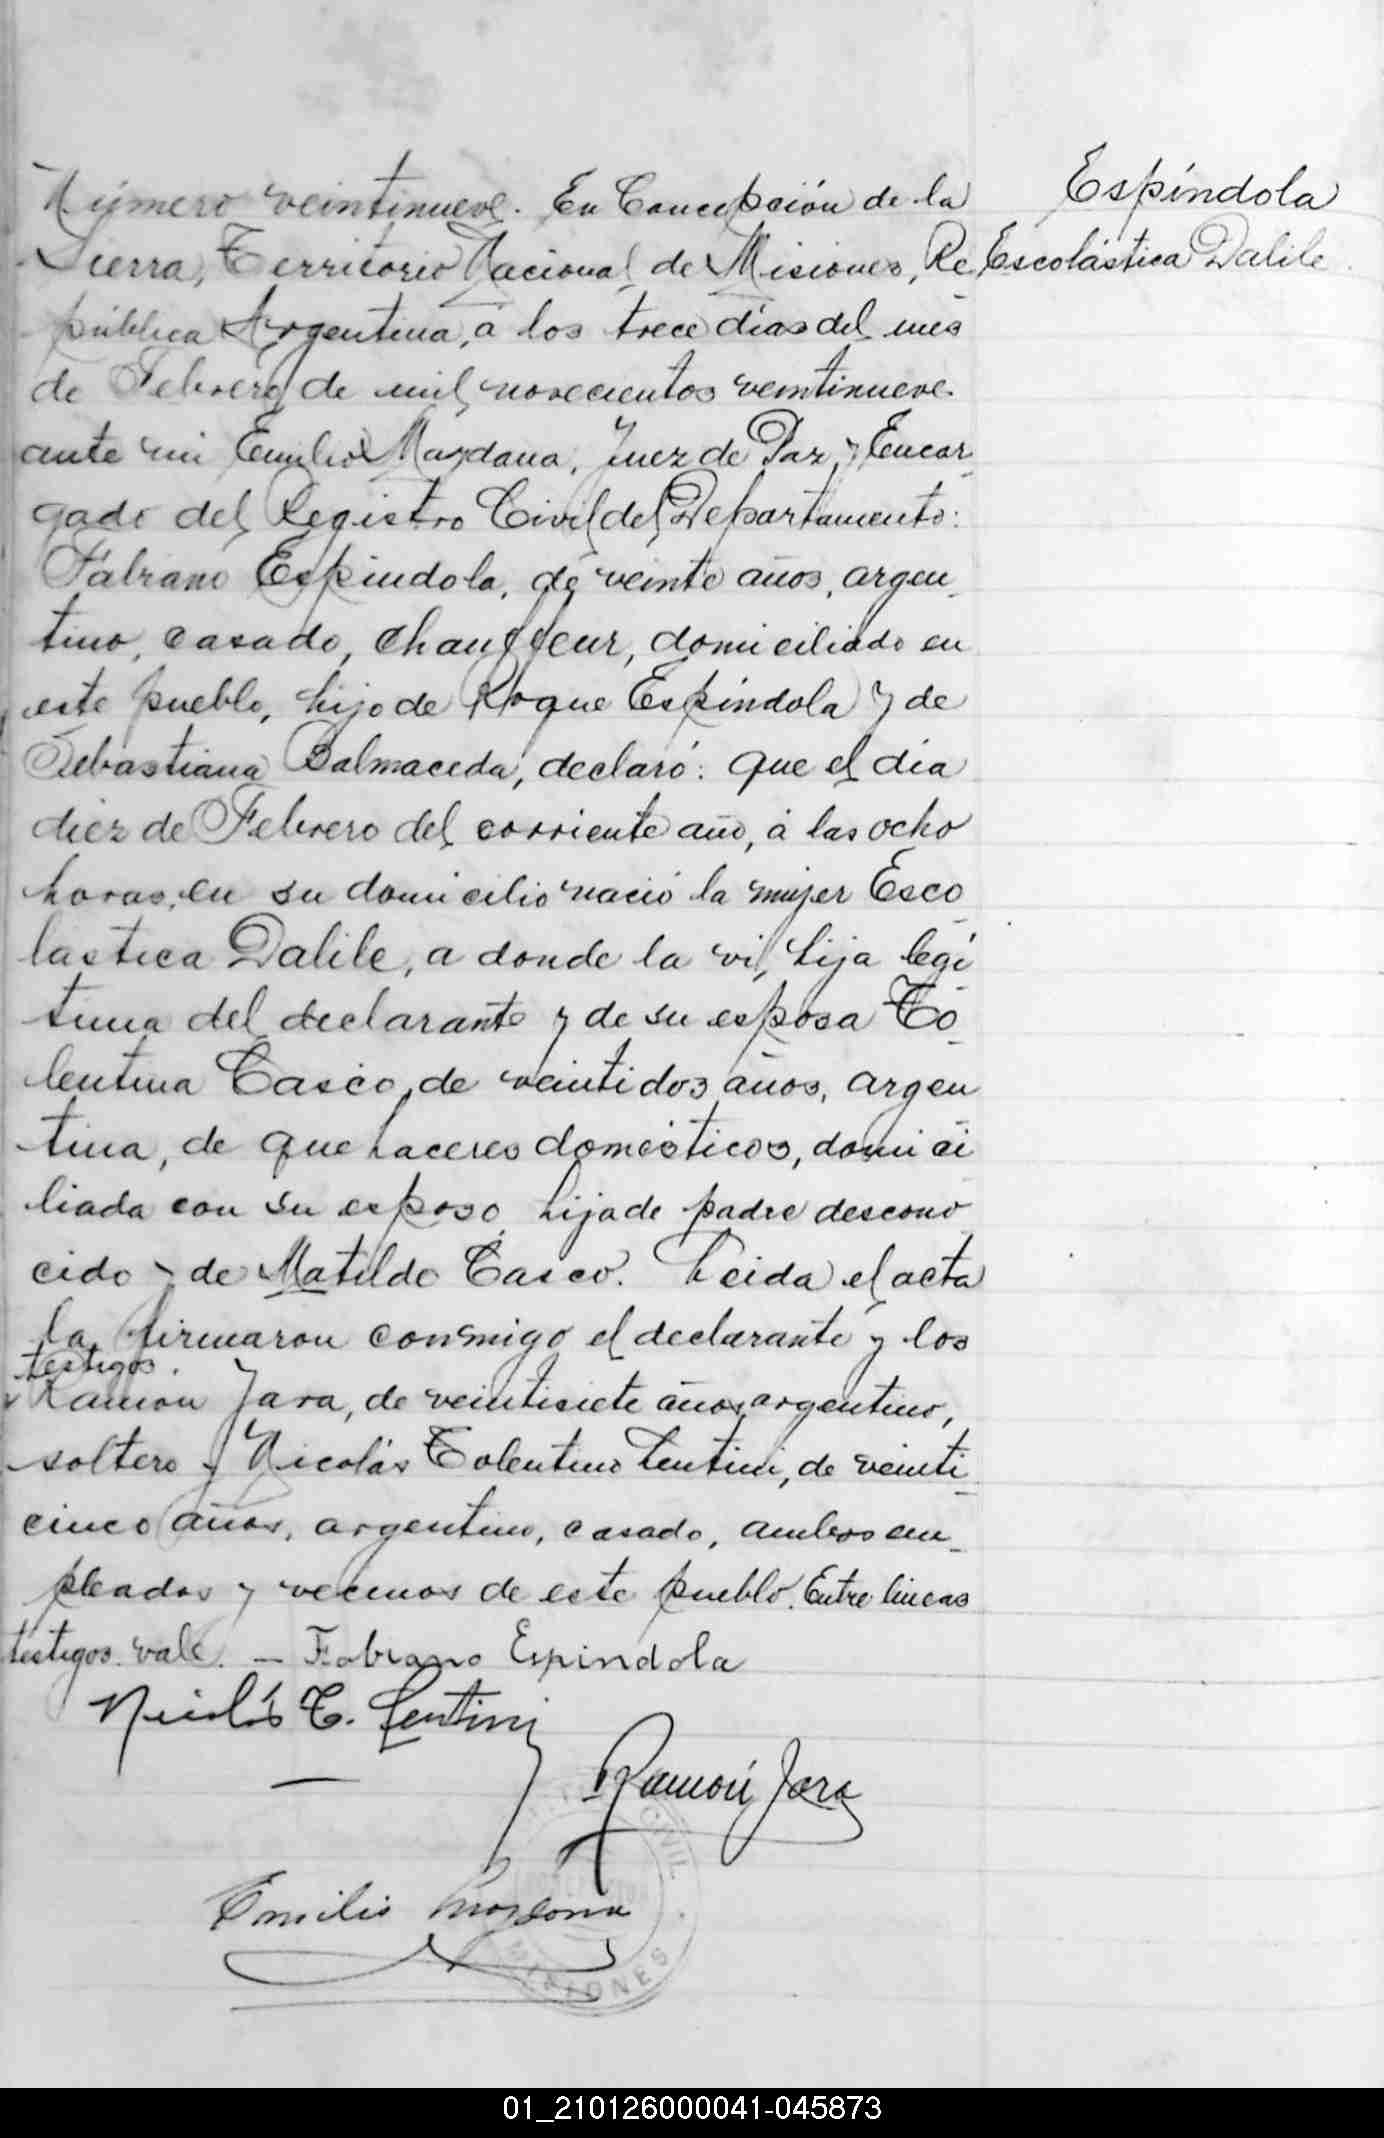 Número veintinueve. En Concepción de la
Sierra, Territorio Nacional de Misiones, Re
pública Argentina, á los trece dias del mes
de Febrero de mil novecientos veintinueve
ante mi Emilio Maydana, Juez de Paz y Encar
gado del Registro Civil del Departamento:
Fabiano Espíndola, de veinte años, argen
tino, casado, chauffeur, domiciliado en
este pueblo, hijo de Roque Espíndola y de
Sebastiana Balmaceda, declaró: que el día
diez de Febrero del corriente año, á las ocho
horas, en su domicilio nació la mujer Esco
lastica Dalile, a donde la vi, hija legi
tima del declarante y de su esposa To
lentina Casco, de veintidos años, argen
tina, de quehaceres domésticos, domici
liada con su esposo, hija de padre descono
cido y de Matilde Casco. Leida el acta
la firmaron conmigo el declarante y los
testigos.
Ramón Jara, de veintisiete años, argentino,
soltero y Nicolás Tolentino Lentini, de veinti
cinco años, argentino, casado, ambos em
pleados y vecinos de este pueblo. Entre lineas
testigos. vale. — Fabiano Espindola
Nicolás T. Lentini
Ramón Jara
Emilio Maydana
CIVIL
MISIONES
Espíndola
Escolástica Dalile
01_210126000041-045873